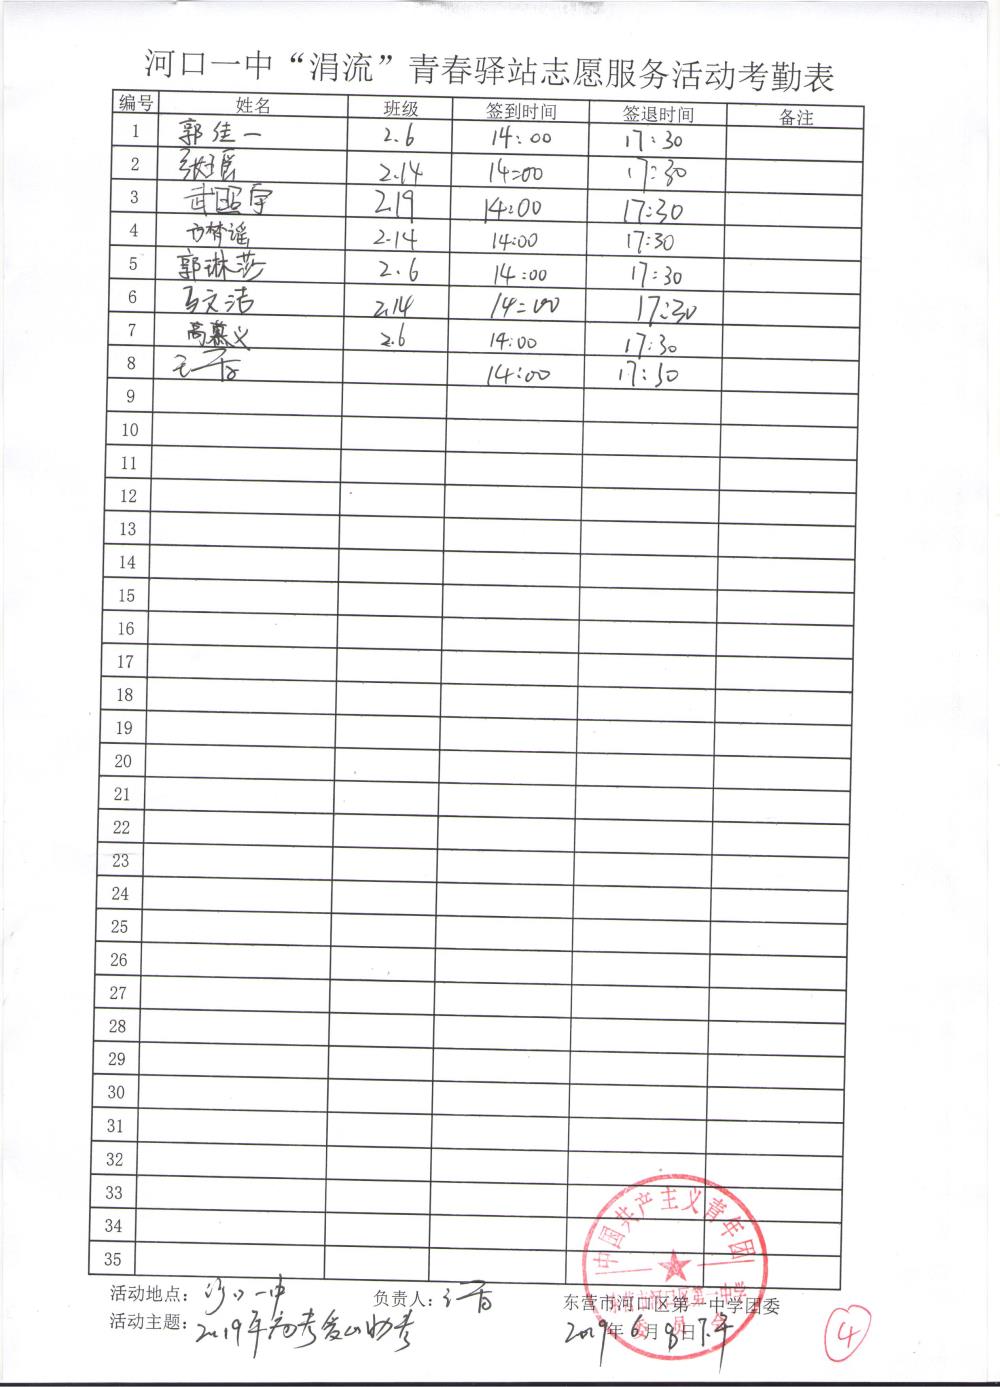 河口一中“涓流”青春驿站志愿服务活动考勤表
编号 姓名 班级 签到时间 签退时间 备注
1 郭佳一 2.6 14:00 17:30
2 2.14 14:00 17:30
3 武宇 2.19 14:00 17:30
4 方梦谣 2.14 14:00 17:30
5 郭琳莎 2.6 14:00 17:30
6 马文洁 2.14 14:00 17:30
7 高慕义 2.6 14:00 17:30
8 王一 14:00 17:30
9
10
11
12
13
14
15
16
17
18
19
20
21
22
23
24
25
26
27
28
29
30
31
32
33
34
35
中国共产主义青年团
东营市河口区第一中学
委员会
活动地点：河口一中 负责人： 东营市河口区第一中学团委
活动主题：2019年高考爱心助考 2019年6月8日下午
4